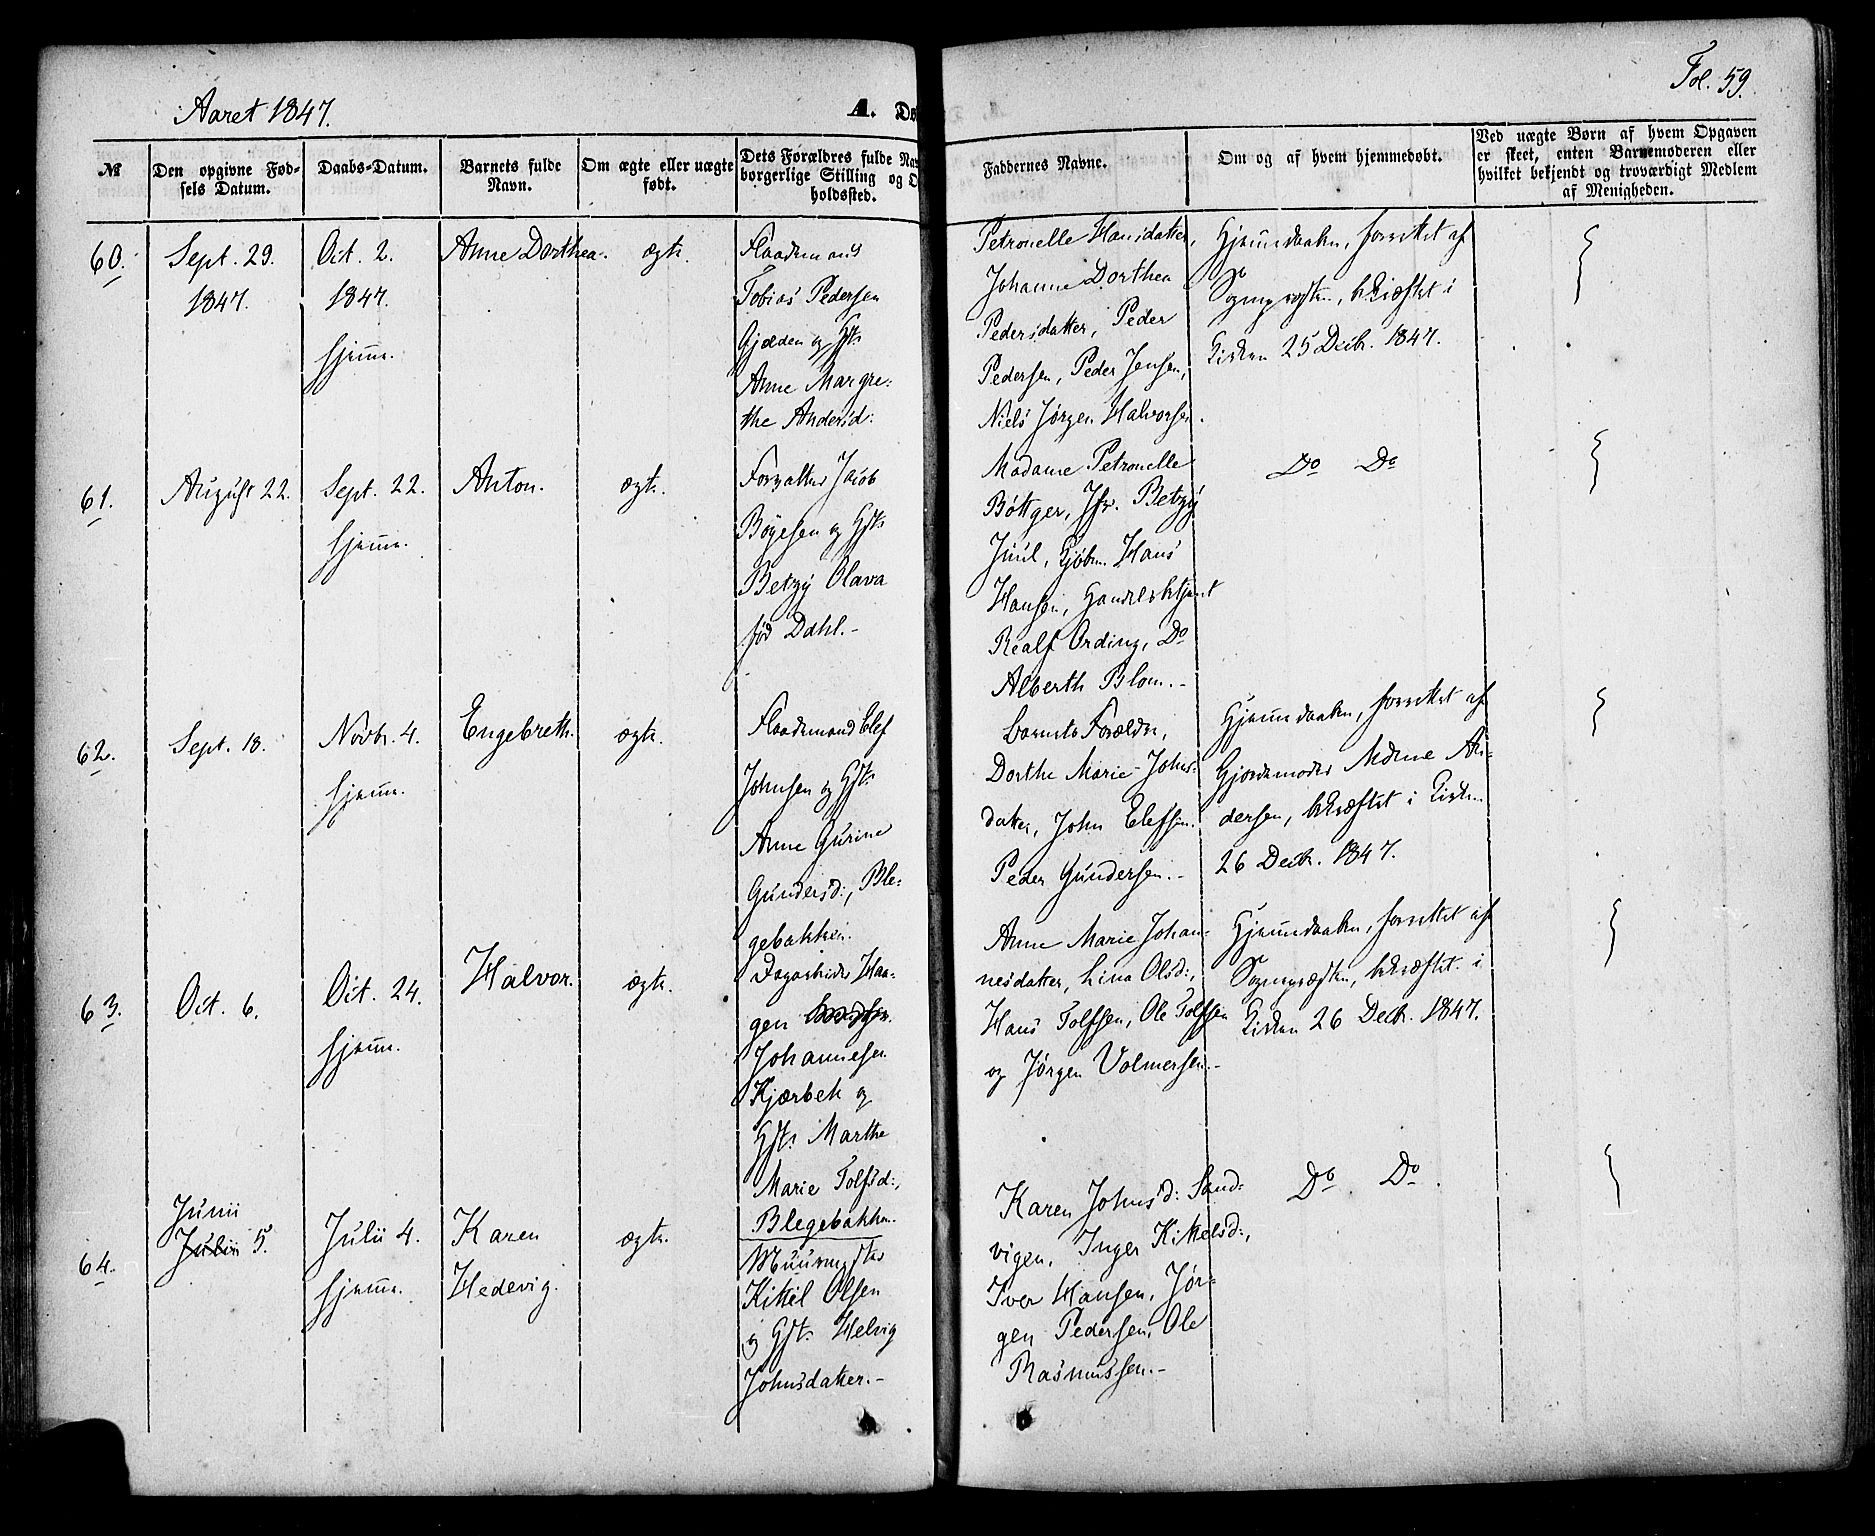 Fol. 59.
Aaret 1847.
A. Dø
№
Den opgivne Fød-
sels Datum.
Daabs-Datum.
Barnets fulde
Navn.
Om ægte eller uægte
født.
Dets Forældres fulde Nav
borgerlige Stilling og O
holdssted.
Faddernes Navne.
Om og af hvem hjemmedøbt.
Ved uægte Børn af hvem Opgaven
er skeet, enten Barnemoderen eller
hvilket bekjendt og troværdigt Medlem
af Menigheden.
60.
Sept. 29.
1847.
Oct. 2.
1847.
hjeme.
Anne Dorthea.
ægte.
Flaademand
Tobias Pedersen
Gjelden og Hst.
Anne Margre-
the Andersd:
Petronelle Hansdatter,
Johanne Dorthea
Pedersdatter, Peder
Pedersen, Peder Jensen,
Niels Jørgen Halvorsen.
Hjemedaaben, forrettet af
Sognepræsten, bekræftet i
Kirken 25 Decbr. 1847.
61.
August 22.
Sept. 22.
hjeme.
Anton.
ægte.
Forvalter Jacob
Boyesen og Hst.
Betzy Olava
fød Dahl.-
Madame Petronelle
Böttger, Jfr. Betzy
Juul, Kjøbm. Hans
Hansen, Handelsbetjent
Realf Ording, Do
Alberth Blom.-
Do Do
62.
Sept. 18.
Novbr. 4.
hjeme.
Engebreth.
ægte.
Flaademand Elef
Johnsen og Hst.
Anne Gurine
Gundersd:, Ble-
gebakken.
Barnets Forældre,
Dorthe Marie Johns-
datter, John Elefsen.
Peder Gundersen.-
Hjemedaaben, forrettet af
Gjordemoder Maren An-
dersen, bekræftet i Kirken
26 Decbr. 1847.
63.
Oct. 6.
Oct. 24.
hjeme.
Halvor.
ægte.
Dagarbeider Haa-
gen
Johannesen
Kjærbek og
Hst. Marthe
Marie Tolfsd:,
Blegebakken.
Anne Marie Johan-
nesdatter, Lina Olsd:,
Hans Tolfsen, Ole Tolfsen
og Jørgen Volmersen.-
Hjemedaaben, forrettet af
Sognepræsten, bekræftet i
Kirken 26 Decbr. 1847.
64.
Junii
Julii 5.
Julii 4.
hjeme.
Karen
Hedevig.
ægte.
Muurmester
Kittil Olsen
og Hst. Helvig
Johnsdatter.-
Karen Johnsd: Sand-
vigen, Inger Kittelsd:,
Iver Hansen, Jør-
gen Pedersen, Ole
Rasmussen.-
Do Do.